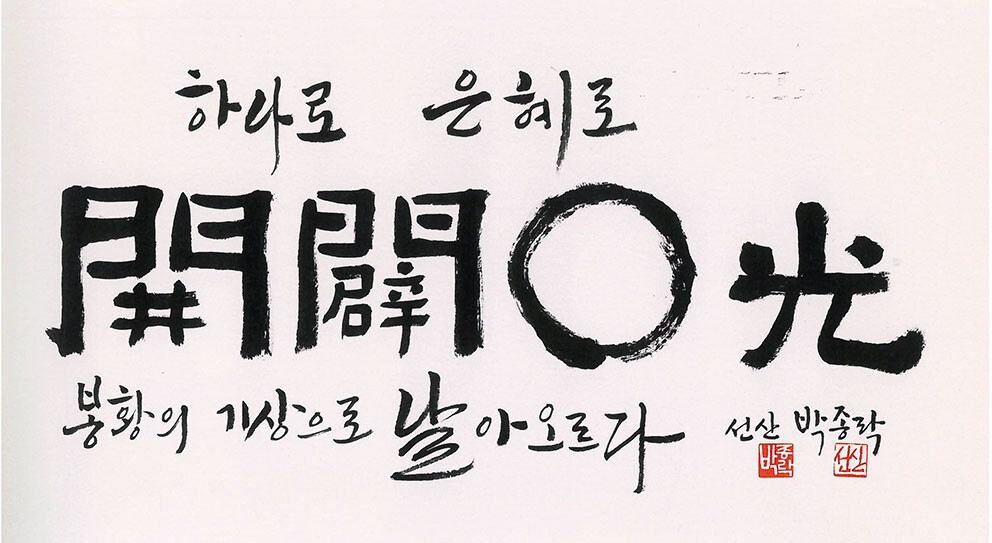 하나로 은혜로
開闢〇光
봉황의 기상으로 날아오르다
선산 박종락
박종락 선산